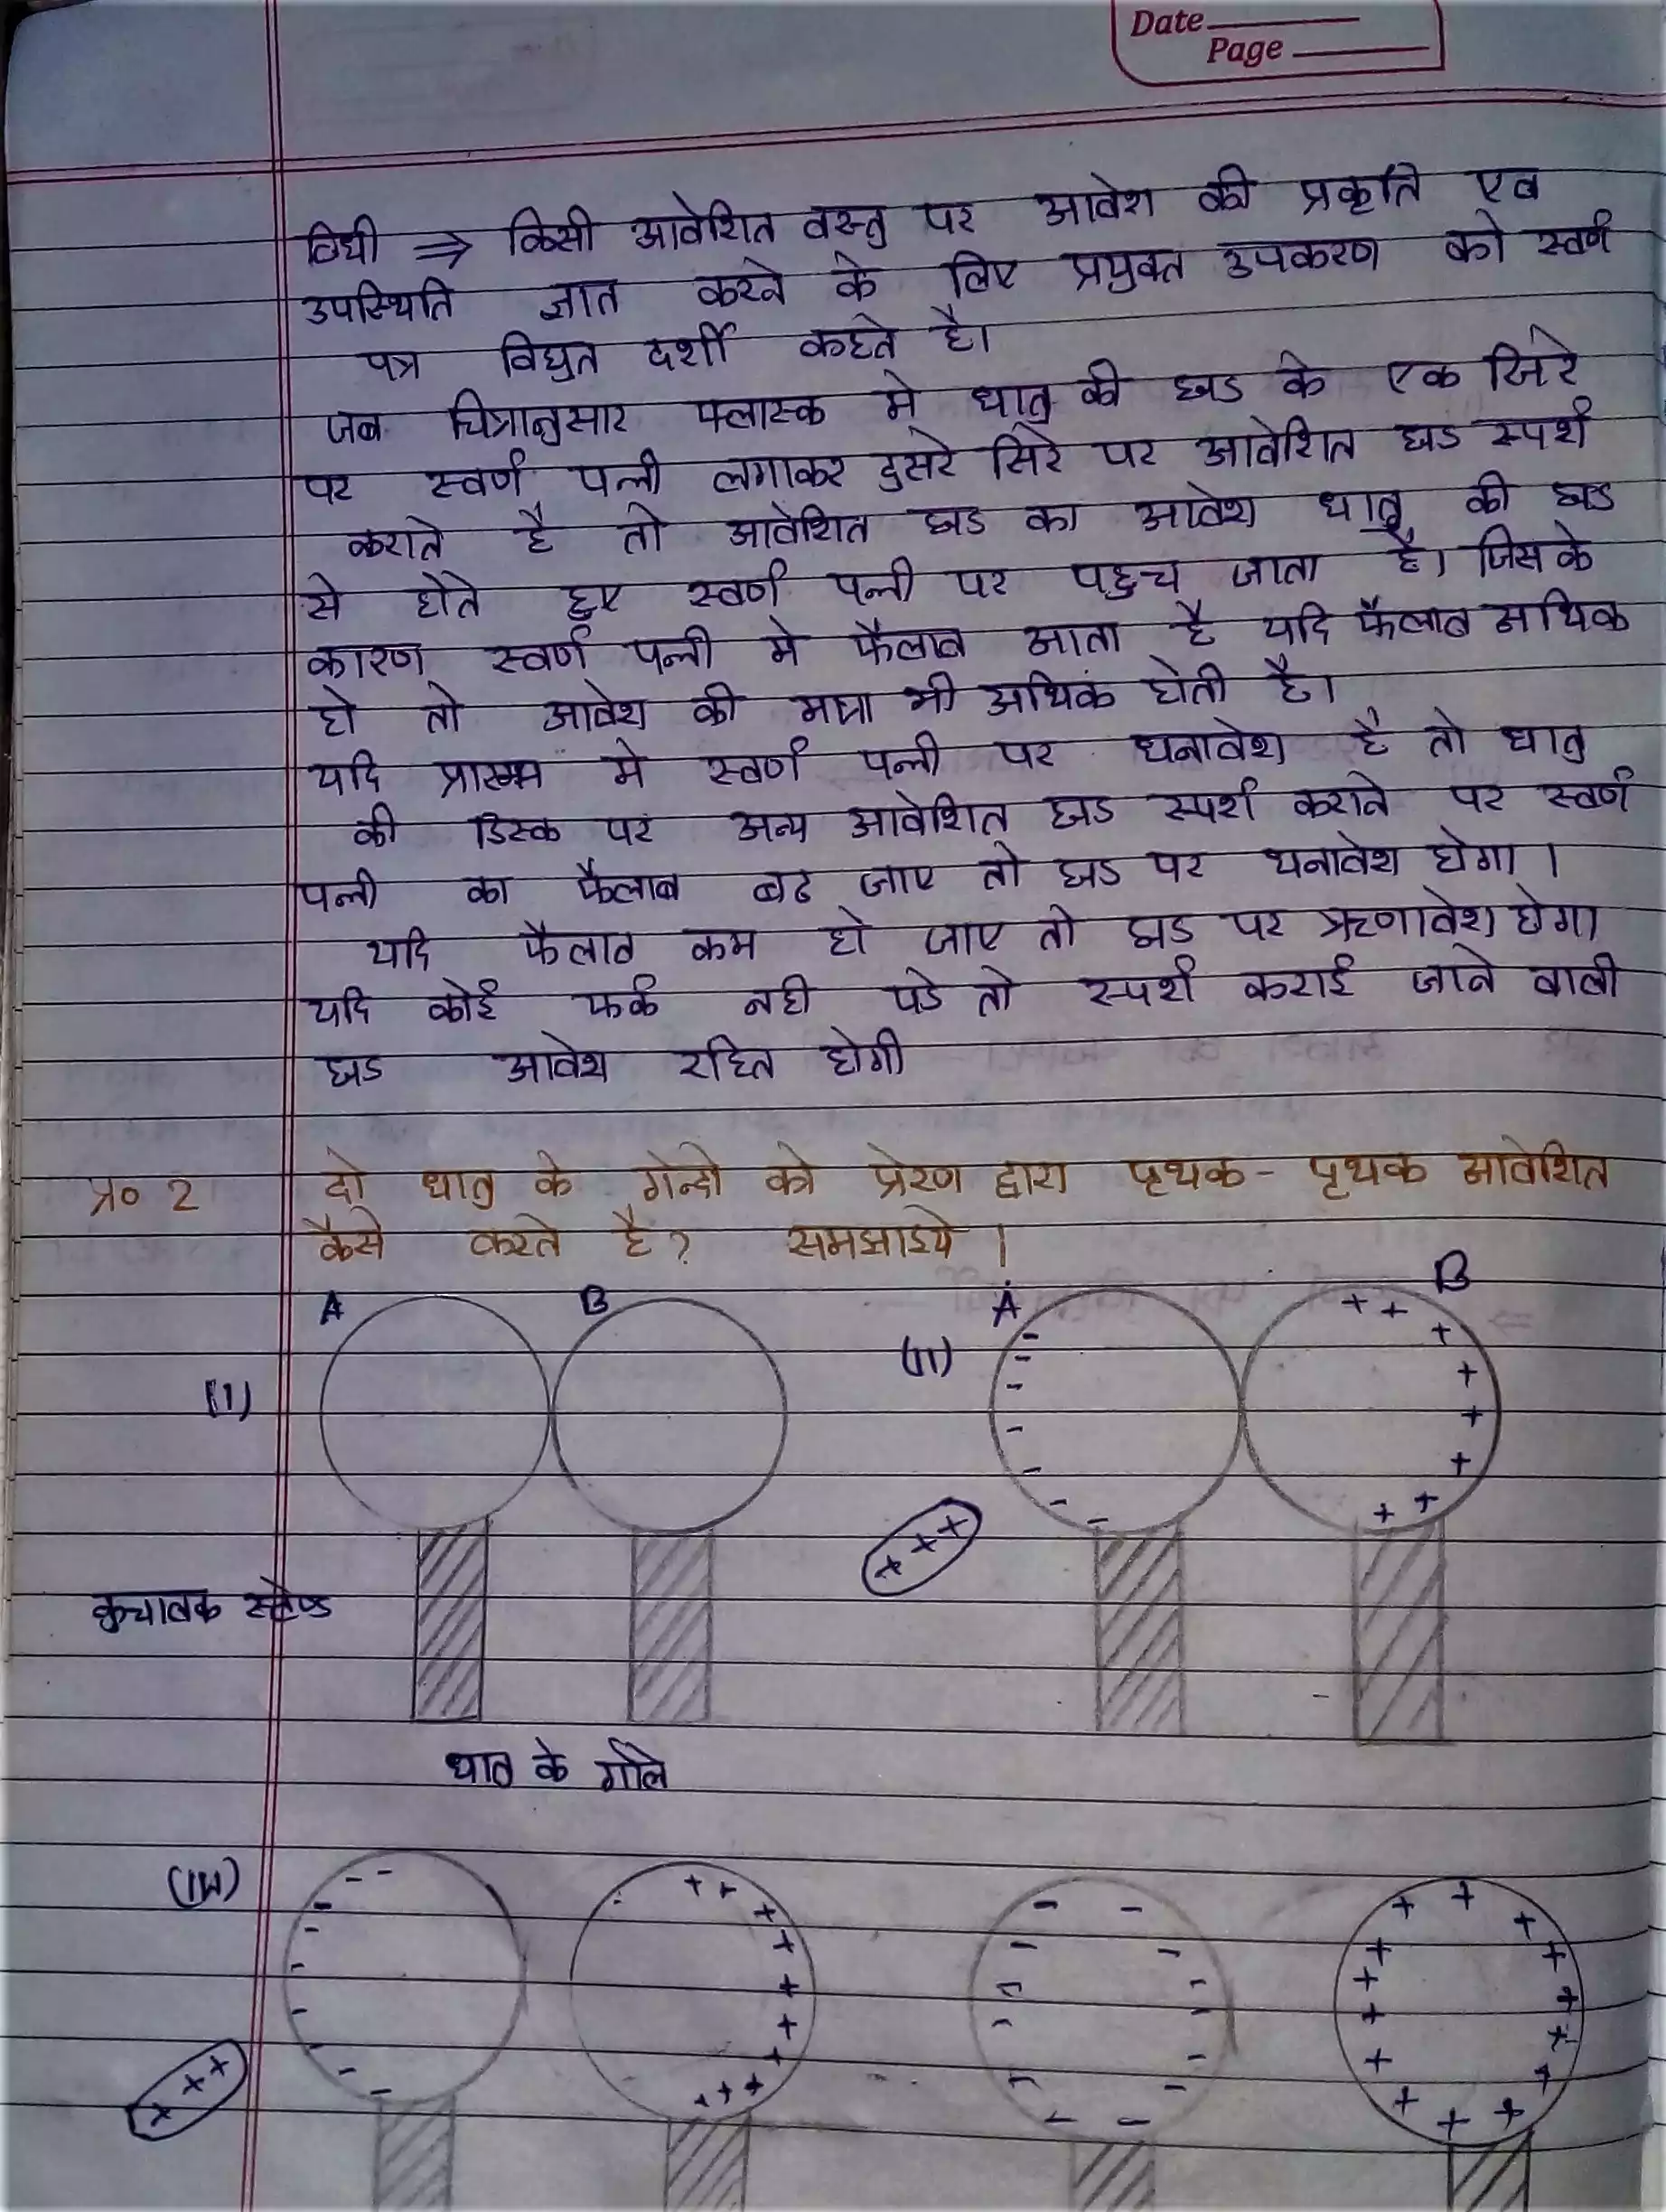 Date
Page
विधी ⇒ किसी आवेशित वस्तु पर आवेश की प्रकृति एव
उपस्थिति ज्ञात करने के लिए प्रयुक्त उपकरण को स्वर्ण
पत्र विधुत दर्शी कहते है।
जब चित्रानुसार फ्लास्क मे धातु की छड के एक सिरे
पर स्वर्ण पत्नी लगाकर दुसरे सिरे पर आवेशित छड स्पर्श
कराते है तो आवेशित छड का आवेश धातु की छड
से होते हुए स्वर्ण पत्नी पर पहुच जाता है। जिसके
कारण स्वर्ण पत्नी मे फैलाव आता है यदि फैलाव अधिक
हो तो आवेश की मात्रा भी अधिक होती है।
यदि प्रारम्भ मे स्वर्ण पत्नी पर धनावेश है तो धातु
की डिस्क पर अन्य आवेशित छड स्पर्श कराने पर स्वर्ण
पत्नी का फैलाव बढ जाए तो छड पर धनावेश होगा।
यदि फैलाव कम हो जाए तो छड पर ऋणावेश होगा
यदि कोई फर्क नही पडे तो स्पर्श कराई जाने वाली
छड आवेश रहित होगी
प्र० 2 दो धातु के गेन्दो को प्रेरण द्वारा पृथक - पृथक आवेशित
कैसे करते है? समझाइये।
A B A B
(I) (II)
कुचालक स्टेण्ड
धातु के गोले
(III)